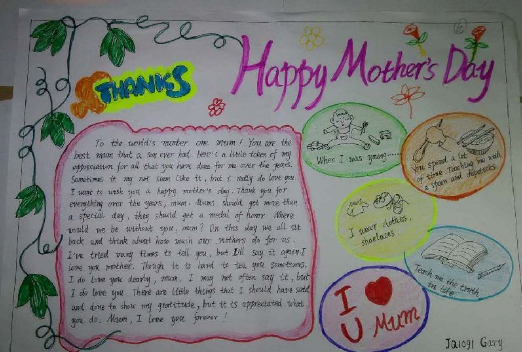 THANKS
Happy Mother's Day
To the world's number one mum! You are the
best mum that a son ever had, here's a little token of my
appreciation for all that you have done for me over the years.
Sometimes it may not seem like it, but i really do love you
I want to wish you a happy mother's day. Thank you for
everything over the years, mum. Mums should get more than
a special day, they should get a medal of honor. Where
would we be without you, mum? On this day we all sit
back and think about how much our mothers do for us
I've tried many times to tell you, but I'll say it again I
love you mother. Though it is hard to tell you sometimes,
I do love you dearly, mum. I may not often say it, but
I do love you. There are little things that I should have said
and done to show my gratitude, but it is appreciated what
you do. Mum, I love you forever!
When I was young......
You spend a lot
of time Teaching me with
a spoon and chopsticks
I wear clothes,
shoelaces
Teach me the truth
in life
I
U Mum
J21091 Gary